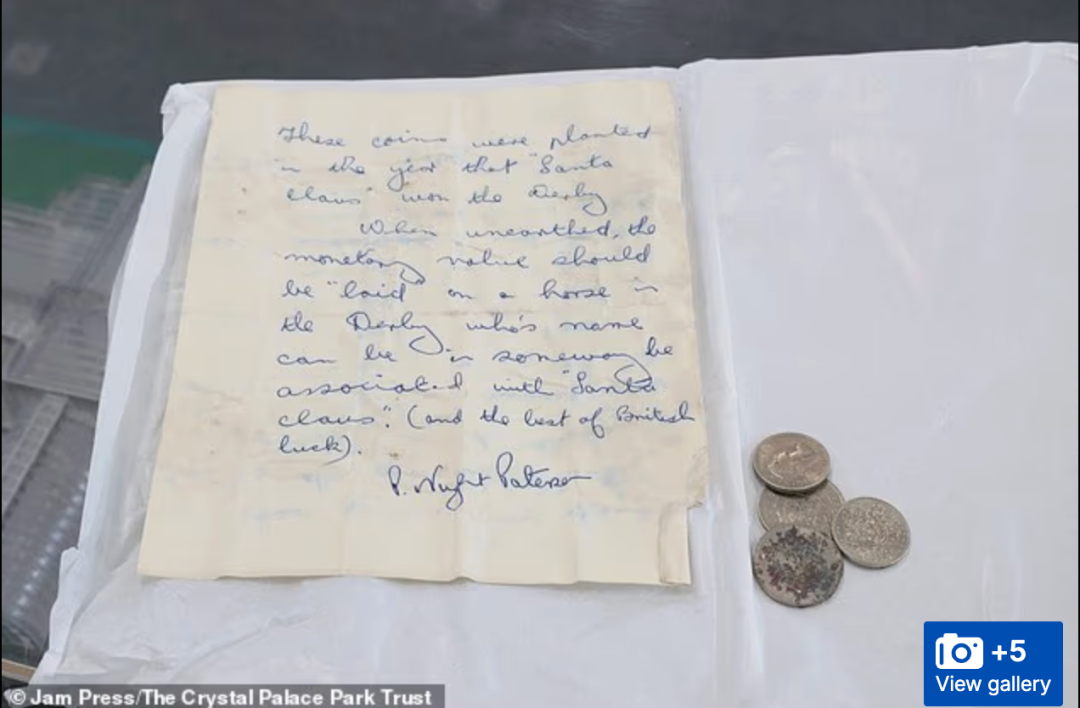 These coins were planted
in the year that "Santa
Claus" won the Derby
When unearthed, the
monetary value should
be "laid" on a horse in
the Derby who's name
can be in someway be
associated with "Santa
Claus". (and the best of British
luck).
P.
© Jam Press/The Crystal Palace Park Trust
+5
View gallery